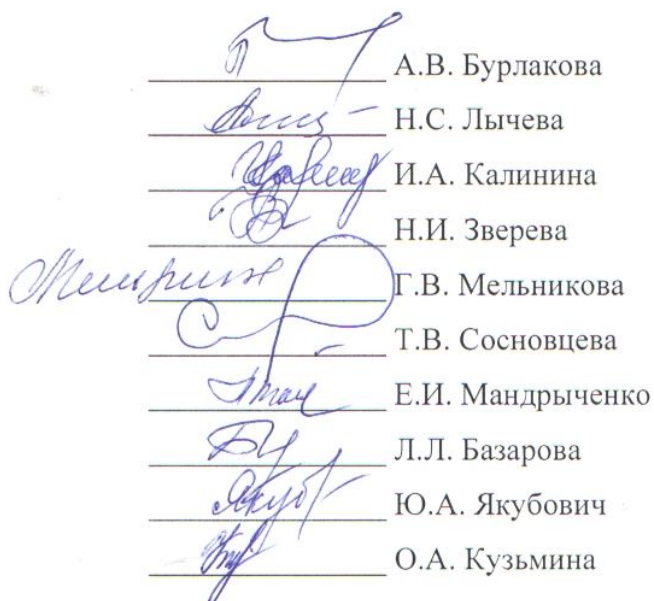 А.В. Бурлакова
Н.С. Лычева
И.А. Калинина
Н.И. Зверева
Г.В. Мельникова
Т.В. Сосновцева
Е.И. Мандрыченко
Л.Л. Базарова
Ю.А. Якубович
О.А. Кузьмина